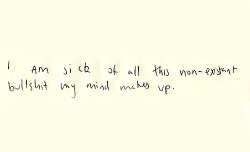 I am sick of all this non-existant
bullshit my mind makes up.